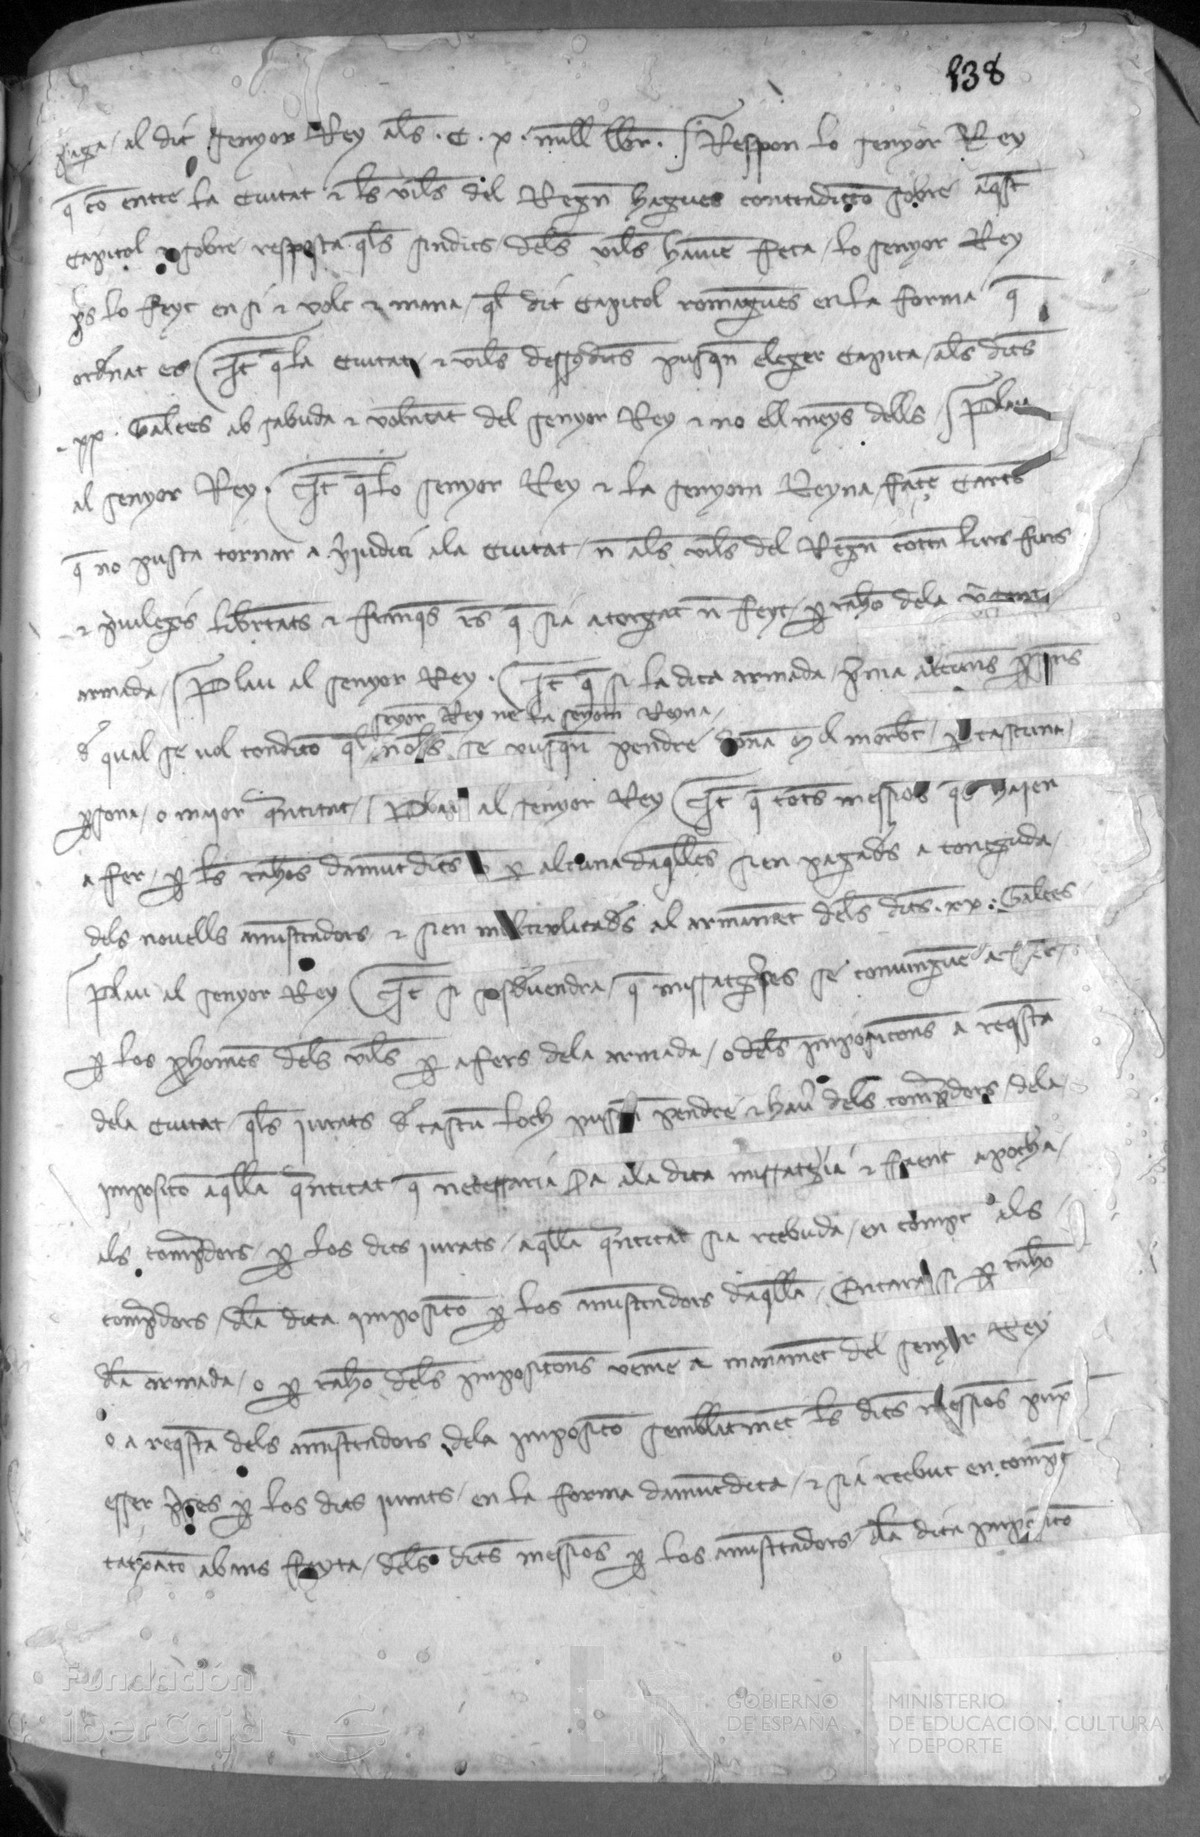 138
paga al dit senyor Rey als · C · x · mill lbr · Respon lo senyor Rey
q co entre la Ciutat ⁊ ls vils del Regn hagues contradicco sobre aqst
Capitol sobre resposta qls sindics dels vils havie feta lo senyor Rey
ps lo feyt en si ⁊ volc ⁊ mana ql dit Capitol romangues en la forma q
ordnat es Itt q la Ciutat ⁊ vils dessdits pusqn eleger Capita als dits
· xx · Galees ab sabuda ⁊ voluntat del senyor Rey ⁊ no ell meys dells Plau
al senyor Rey · Itt q lo senyor Rey ⁊ la senyora Reyna facen Cartes
q no pusca tornar a piudici ala Ciutat n als vils del Regn contra lurs furs
⁊ priuilegis libertats ⁊ franqs res q sia atorgat n feyt p raho dela
armada Plau al senyor Rey · Itt q si la dita armada pnia alcuns
senyor Rey ne la senyora Reyna
d qual se vol condicio ql nols se pusqn pendre mil morbt p cascuna
psona o maior quntitat Plau al senyor Rey Itt q totes messios qs hajen
a fer p ls rahos damunt dites p alcuna daqlles sien pagades a coneguda
dels nouells amistradors ⁊ sien multiplicades al armament dels dits · xx · Galees
Plau al senyor Rey Itt si sdeuendra q missatges se conuingue
p los phomes dels vils p afers dela armada o dels imposicions a reqsta
dela Ciutat qls jurats d cascu loch pusqn pendre ⁊ hau dels compdors dela
imposicio aqlla quntitat q necessaria sia ala dita missatgia ⁊ faent apocha
als compdors p los dits jurats aqlla quntitat sia reebuda en compte als
compdors dla dita imposicio p los amistradors daqlla Encara si p raho
dla armada o p raho dels imposicions venie a manament del senyor Rey
o a reqsta dels amistradors dela imposicio semblantment ls dits messios
esser pses p los dits jurats en la forma damunt dita ⁊ sia reebut en compte
taxacio abans feyta dels dits messios p los amistradors dla dita imposicio
Fundación
iberCaja
GOBIERNO
DE ESPAÑA
MINISTERIO
DE EDUCACIÓN, CULTURA
Y DEPORTE